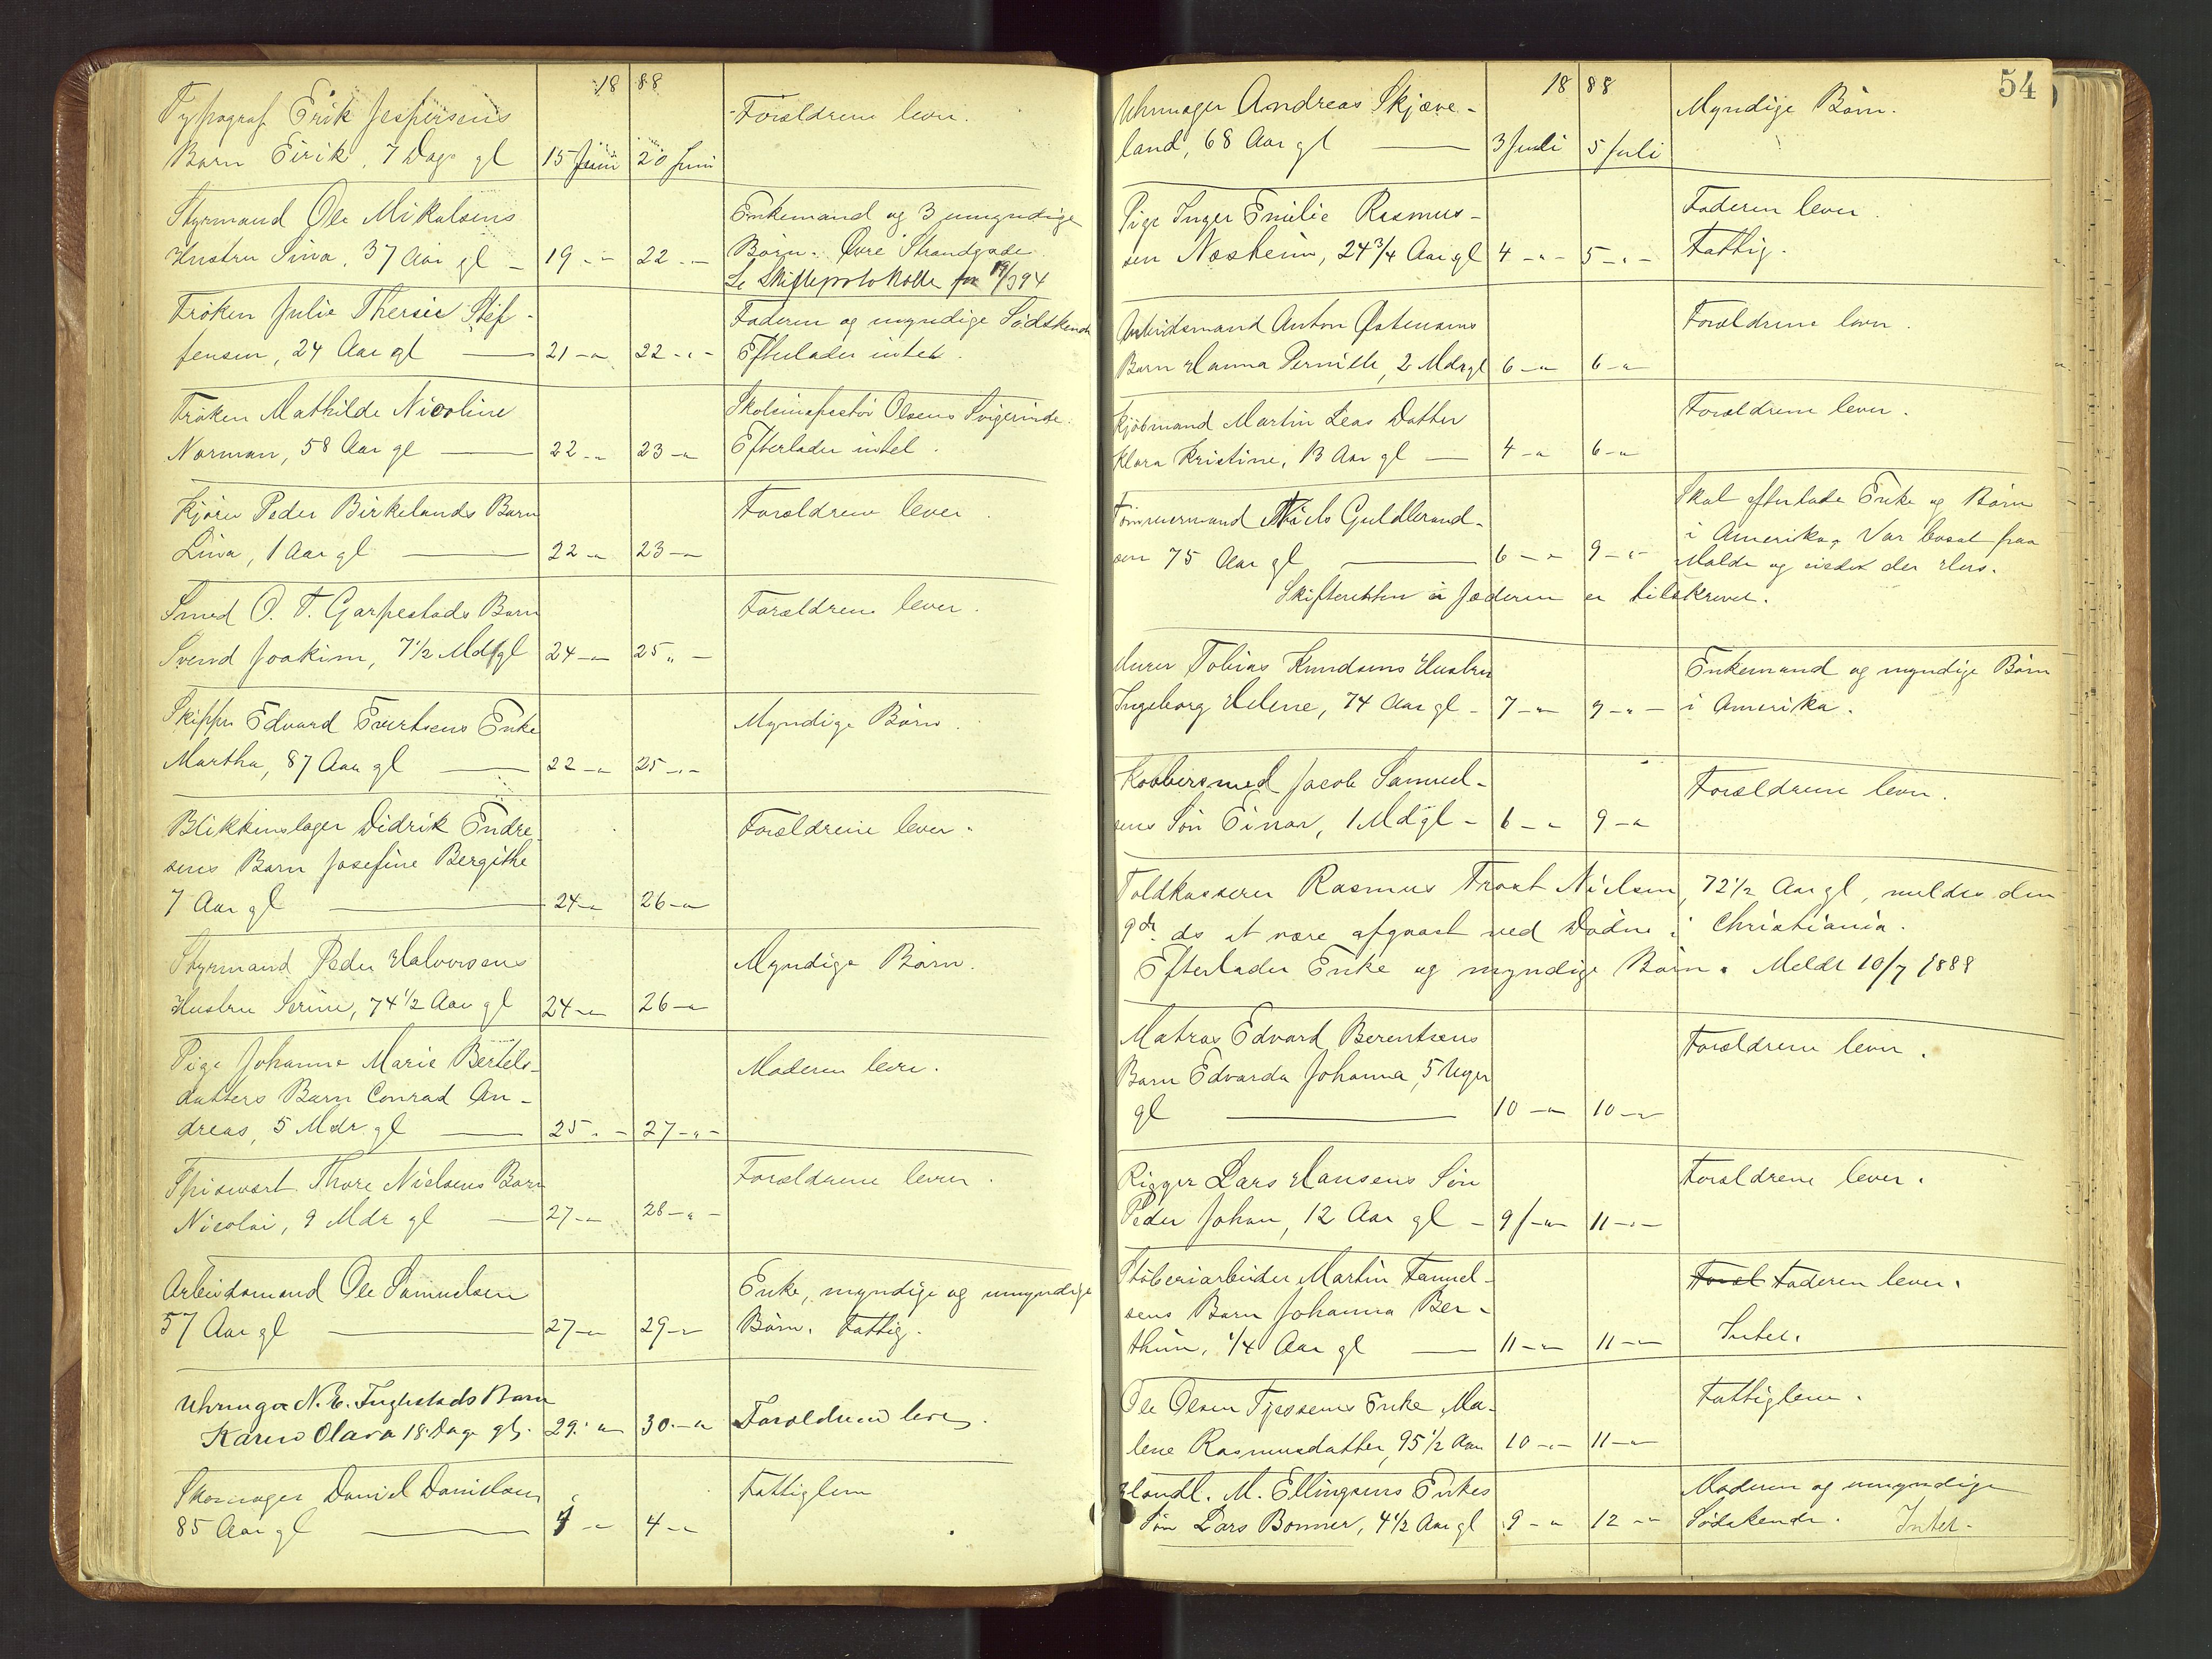 18 88
Typograf Erik Jespersens
Barn Eirik, 7 Dage gl 15 Juni 20 Juni Forældrene lever.
Styrmand Ole Mikalsens
Hustru Sina, 37 Aar gl 19 - " - 22 - " - Enkemand og 3 umyndige
Børn. Øvre Strandgade
Se Skifteprotokolle 19/3 94
Frøken Julie Therese Stef-
fensen, 24 Aar gl 21 - " 22 - " - Faderen og myndige Sødskende
Efterlader intet.
Frøken Mathilde Nicoline
Norman, 58 Aar gl 22 - " 23 - " Skoleinspektør Olsens Svigerinde.
Efterlader intet.
Kjører Peder Birkelands Barn
Lina, 1 Aar gl 22 - " 23 - " Forældrene lever.
Smed O. T. Garpestads Barn
Svend Joakim, 7 1/2 Mdr gl 24 - " 25 " - Forældrene lever.
Skipper Edvard Evertsens Enke
Martha, 87 Aar gl 22 - " 25 - " - Myndige Børn.
Blikkenslager Didrik Endre-
sens Barn Josefine Bergithe
7 Aar gl 24 - " 26 - " Forældrene lever.
Styrmand Peder Halvorsens
Hustru Serine, 74 1/2 Aar gl 24 - " 26 - " Myndige Børn.
Pige Johanne Marie Bertels-
datters Barn Conrad An-
dreas, 5 Mdr. gl 25 " - 27 - " - Moderen lever.
Spisevært Thore Nielsens Barn
Nicolai, 9 Mdr gl 27 - " 28 - " - Forældrene lever.
Arbeidsmand Ole Samuelsen
57 Aar gl 27 - " 29 - " Enke, myndige og umyndige
Børn. Fattig.
Uhrmager N. E. Fuglestads Barn
Karen Olava 18 Dage gl. 29 " 30 - " Forældrene lever.
Skomager Daniel Danielsen,
85 Aar gl 4 - " Fattiglem
54
18 88
Uhrmager Andreas Skjæve-
land, 68 Aar gl 3 Juli 5 Juli Myndige Børn.
Pige Inger Emilie Rasmus-
sen Næsheim, 24 3/4 Aar gl 4 - " - 5 - " - Faderen lever.
Fattig.
Arbeidsmand Anton Østensens
Barn Hanna Pernille, 2 Mdr gl 6 - " 6 - " Forældrene lever.
Kjøbmand Martin Leas Datter
Klara Kristine, 13 Aar gl 4 - " 6 - " Forældrene lever.
Tømmermand Niels Guldbrand-
sen 75 Aar gl 6 - " 9 - " - Skal efterlade Enke og Børn
i Amerika. Var bosat paa
Molde og reiste der
Skifteretten i Jæderen er tilskrevet.
Murer Tobias Knudsens Hustru
Ingeborg Helene, 74 Aar gl - 7 - " 9 - " - Enkemand og myndige Børn
i Amerika.
Kobbersmed Jacob Samuel-
sens Søn Einar, 1 Md gl - 6 - " 9 - " Forældrene lever.
Toldkasserer Rasmus Frost Nielsen, 72 1/2 Aar gl, meldes den
9de ds at være afgaaet ved Døden i Christiania.
Efterlader Enke og myndige Børn. Meldt 10/7 1888
Matros Edvard Berentsens
Barn Edvarda Johanna, 5 Uger
gl 10 - " 10 - " Forældrene lever.
Rigger Lars Hansens Søn
Peder Johan, 12 Aar gl - 9 - " 11 - " - Forældrene lever.
Støberiarbeider Martin Samuel-
sens Barn Johanna Ber-
thine, 1/4 Aar gl 11 - " 11 - " Foræl Faderen lever.
Intet.
Ole Olsen Tjessems Enke Ma-
lene Rasmusdatter, 95 1/2 Aar 10 - " - 11 - " Fattiglem.
Handl. M. Ellingsens Enkes
Søn Lars Bonner, 4 1/2 Aar gl 9 - " 12 - " Moderen og umyndige
Sødskende. Intet.